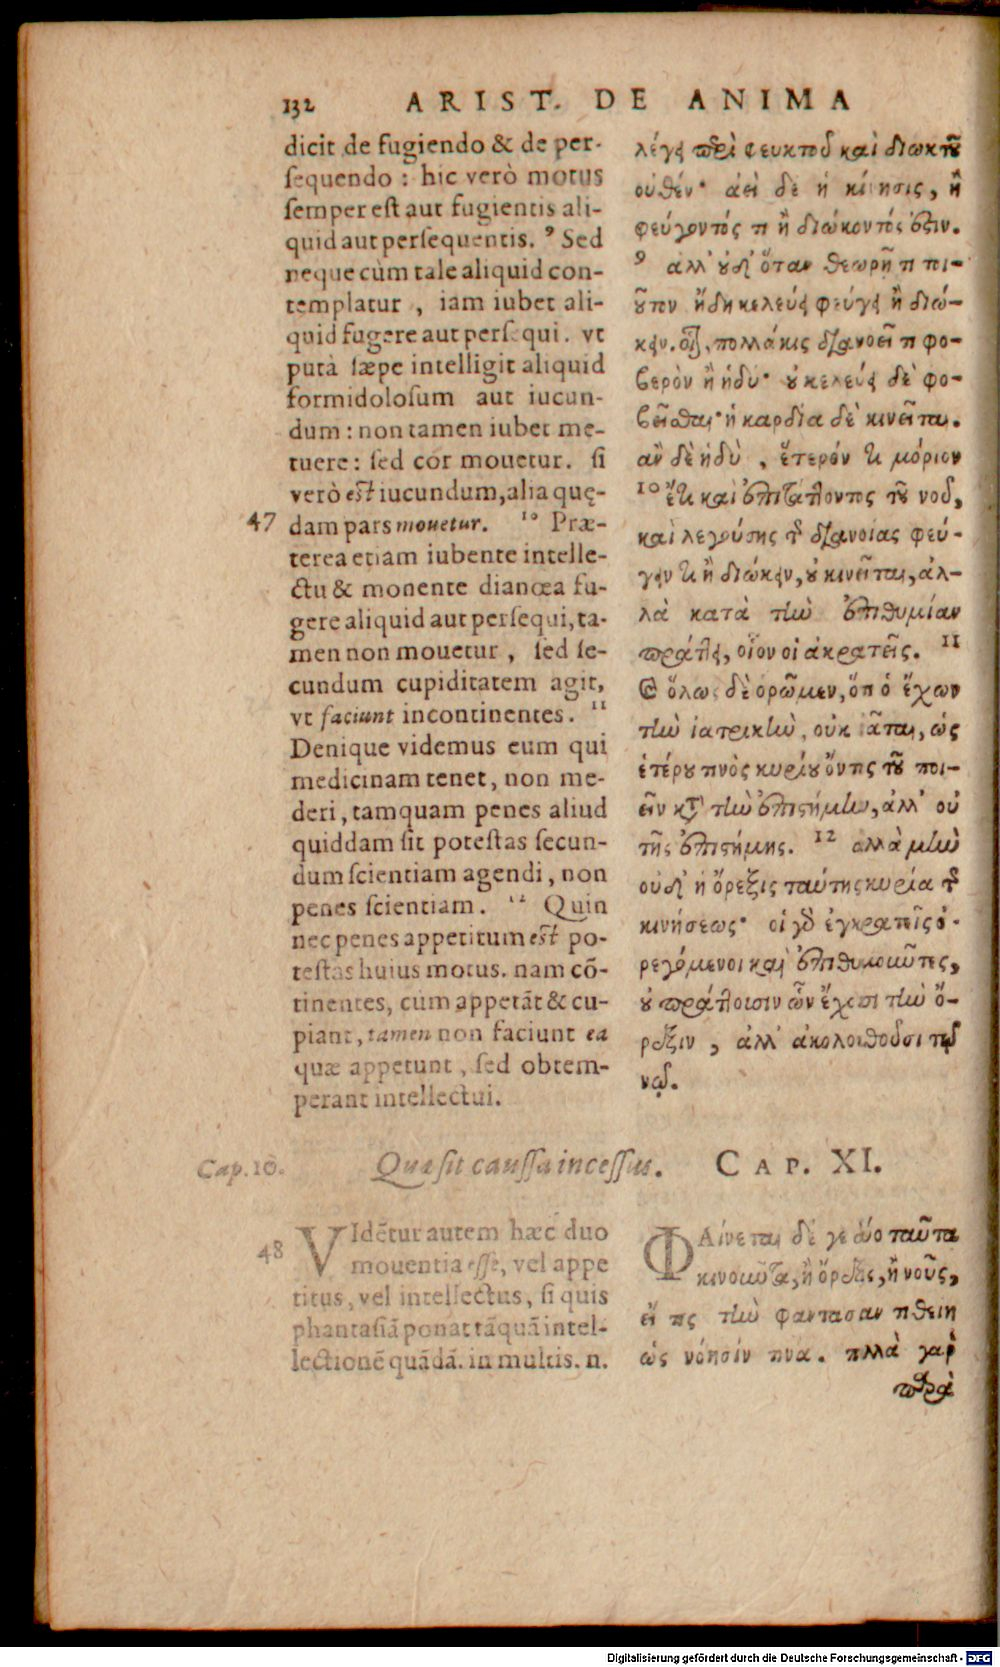 132 ARIST. DE ANIMA
dicit de fugiendo & de per-
ſequendo : hic verò motus
ſemper eſt aut fugientis ali-
quid aut perſequentis. 9 Sed
neque cùm tale aliquid con-
templatur , iam iubet ali-
quid fugere aut perſequi. vt
putà ſæpe intelligit aliquid
formidoloſum aut iucun-
dum : non tamen iubet me-
tuere : ſed cor mouetur. ſi
verò eſt iucundum, alia quę-
47 dam pars mouetur. 10 Præ-
terea etiam iubente intelle-
ctu & monente dianœa fu-
gere aliquid aut perſequi, ta-
men non mouetur , ſed ſe-
cundum cupiditatem agit,
vt faciunt incontinentes. 11
Denique videmus eum qui
medicinam tenet, non me-
deri, tamquam penes aliud
quiddam ſit poteſtas ſecun-
dum ſcientiam agendi, non
penes ſcientiam. 12 Quin
nec penes appetitum eſt po-
teſtas huius motus. nam cō-
tinentes, cùm appetāt & cu-
piant, tamen non faciunt ea
quæ appetunt, ſed obtem-
perant intellectui.
λέγει περὶ φευκτοῦ καὶ διωκτοῦ
οὐθέν· ἀεὶ δὲ ἡ κίνησις, ἢ
φεύγοντός τι ἢ διώκοντός ἐστιν.
9 ἀλλ' οὐδ' ὅταν θεωρῇ τι τοι-
οῦτον ἤδη κελεύει φεύγειν ἢ διώ-
κειν. οἷον, πολλάκις διανοεῖται φο-
βερὸν ἢ ἡδύ· οὐ κελεύει δὲ φο-
βεῖσθαι· ἡ καρδία δὲ κινεῖται.
ἂν δὲ ἡδὺ , ἕτερόν τι μόριον
10 ἔτι καὶ ἐπιτάττοντος τοῦ νοῦ,
καὶ λεγούσης τῆς διανοίας φεύ-
γειν τι ἢ διώκειν, οὐ κινεῖται, ἀλ-
λὰ κατὰ τὴν ἐπιθυμίαν
πράττει, οἷον οἱ ἀκρατεῖς. 11
Καὶ ὅλως δὲ ὁρῶμεν, ὅτι ὁ ἔχων
τὴν ἰατρικὴν, οὐκ ἰᾶται, ὡς
ἑτέρου τινὸς κυρίου ὄντος τοῦ ποι-
εῖν κατὰ τὴν ἐπιστήμην, ἀλλ' οὐ
τῆς ἐπιστήμης. 12 ἀλλὰ μὴν
οὐδ' ἡ ὄρεξις ταύτης κυρία τῆς
κινήσεως· οἱ γὰρ ἐγκρατεῖς ὀ-
ρεγόμενοι καὶ ἐπιθυμοῦντες,
οὐ πράττουσιν ὧν ἔχουσι τὴν ὄ-
ρεξιν , ἀλλ' ἀκολουθοῦσι τῷ
νῷ.
Cap. 10. Quæ ſit cauſſa inceſſus. CAP. XI.
48 VIdētur autem hæc duo
mouentia eſſe, vel appe
titus, vel intellectus, ſi quis
phantaſiā ponat tāquā intel-
lectionē quādā. in multis. n.
ΦΑίνεται δέ γε δύο ταῦτα
κινοῦντα, ἢ ὄρεξις, ἢ νοῦς,
εἴ τις τὴν φαντασίαν τιθείη
ὡς νόησίν τινα. πολλὰ γὰρ
παρὰ
Digitalisierung gefördert durch die Deutsche Forschungsgemeinschaft - DFG